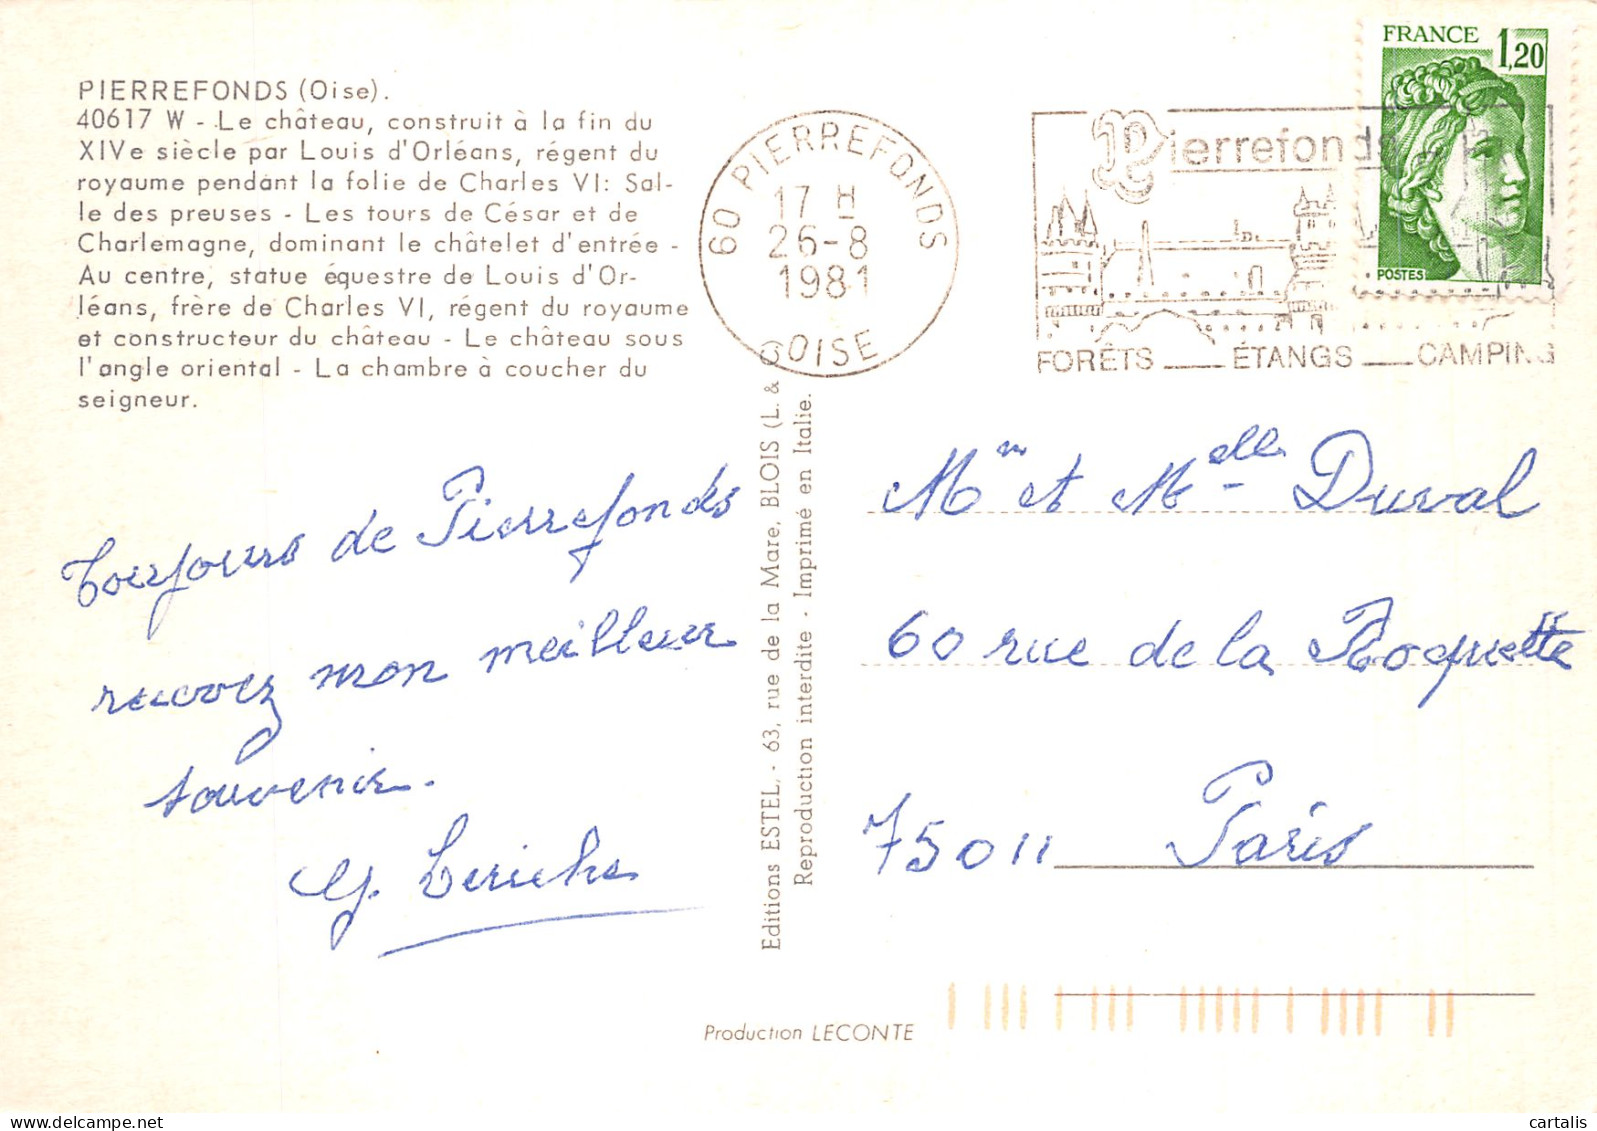 PIERREFONDS (Oise).
40617 W - Le château, construit à la fin du
XIVe siècle par Louis d'Orléans, régent du
royaume pendant la folie de Charles VI: Sal-
le des preuses - Les tours de César et de
Charlemagne, dominant le châtelet d'entrée -
Au centre, statue équestre de Louis d'Or-
léans, frère de Charles VI, régent du royaume
et constructeur du château - Le château sous
l'angle oriental - La chambre à coucher du
seigneur.
60 PIERREFONDS
17 H
26-8
1981
OISE
Pierrefonds
FORÊTS ETANGS CAMPING
FRANCE 1,20
POSTES
Toujours de Pierrefonds
recevez mon meilleur
souvenir.
Leriche
Editions ESTEL, - 63, rue de la Mare, BLOIS (L. &
Reproduction interdite - Imprimé en Italie.
Mm et Melle Duval
60 rue de la Roquette
75011 Paris
Production LECONTE
cartalis